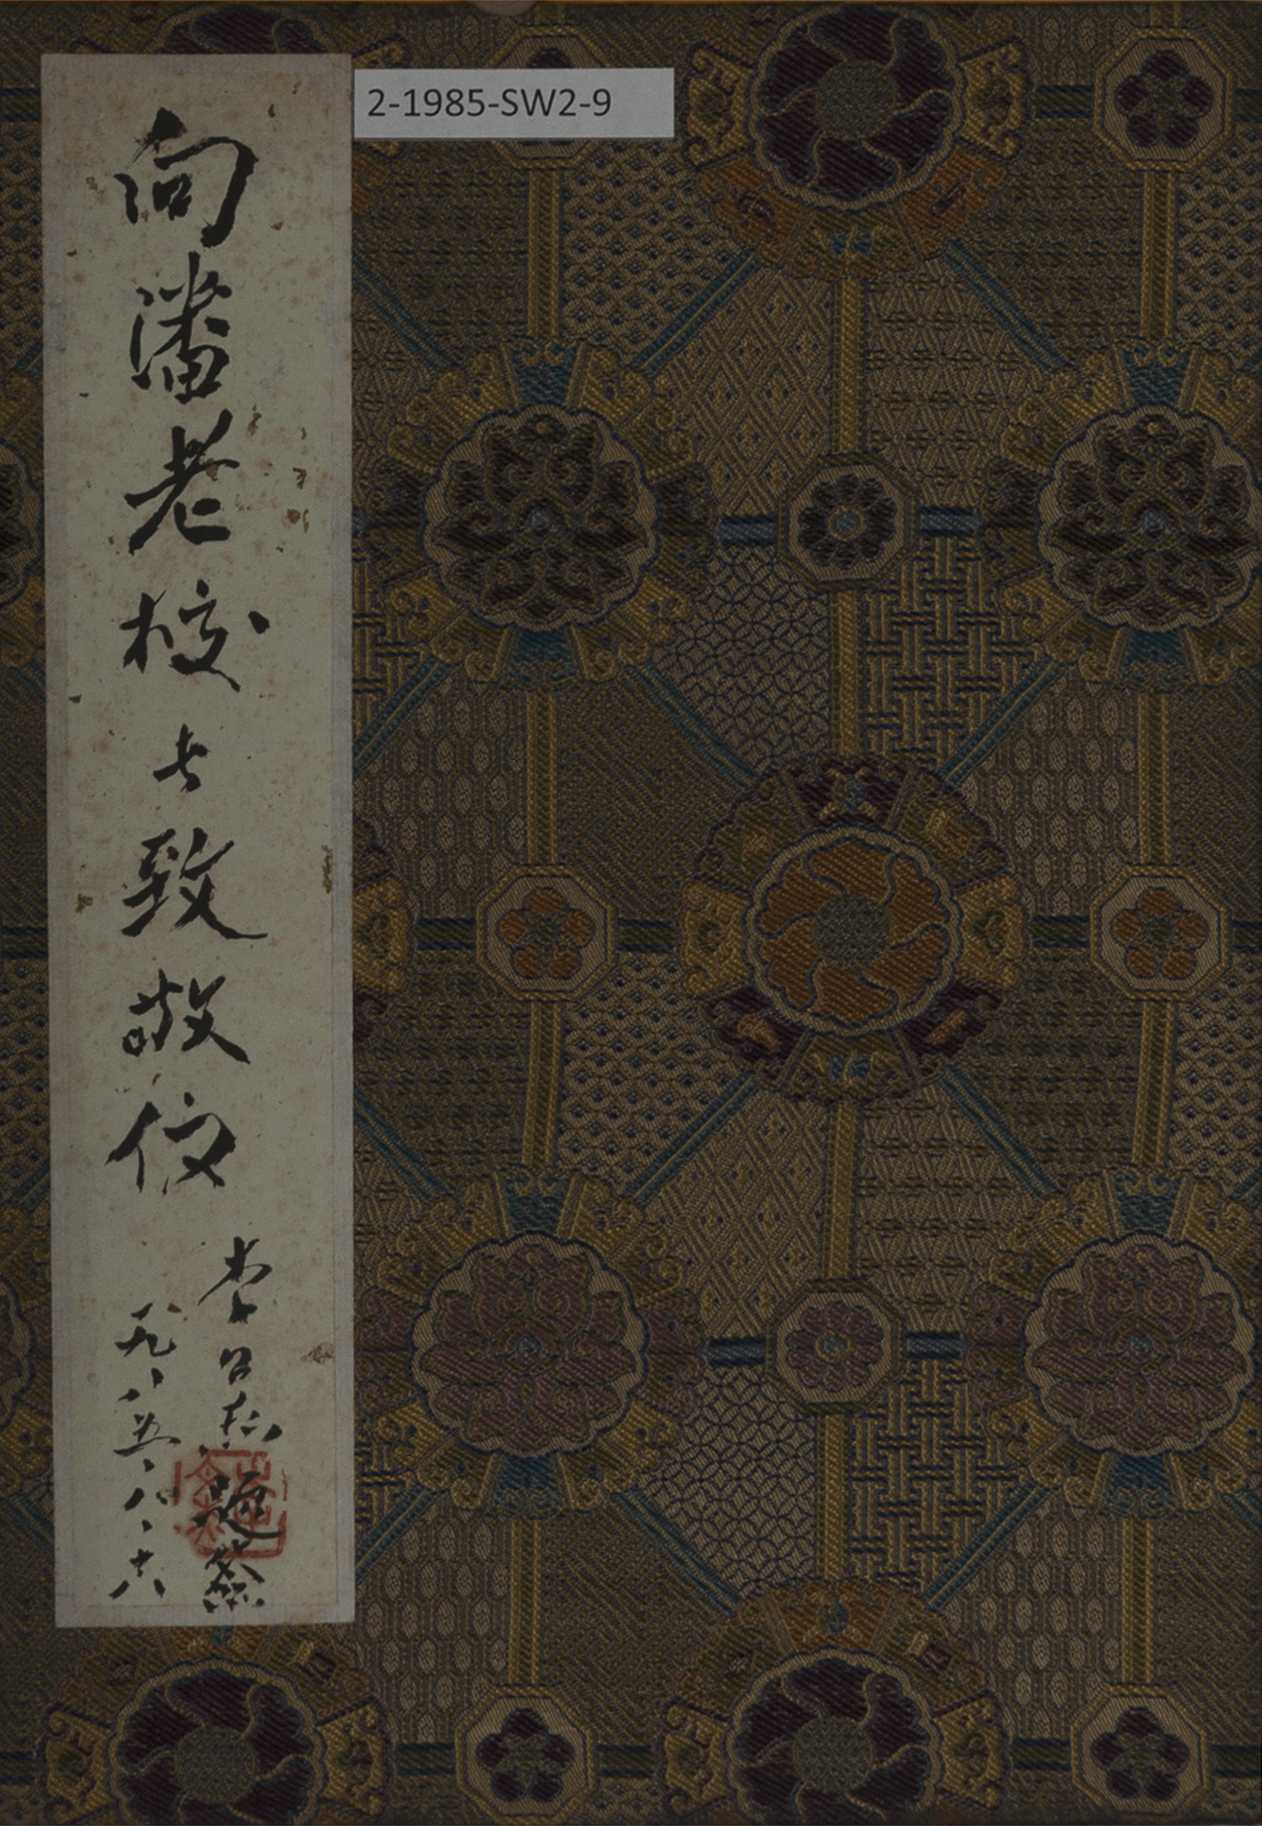 2-1985-SW2-9
向潘老校长致敬仪
李公
题签
一九八五、八、六